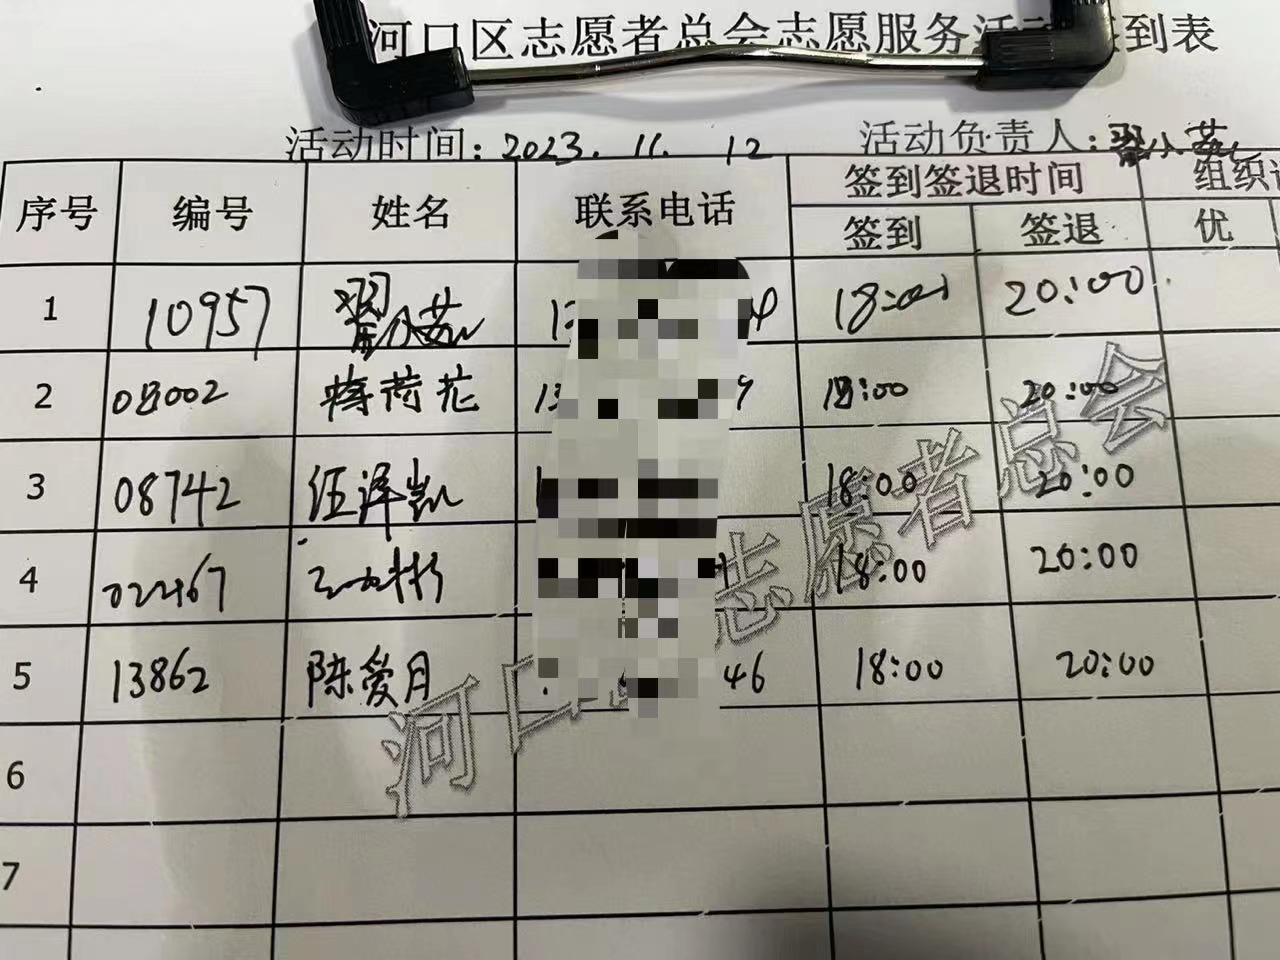 河口区志愿者总会志愿服务活动签到表
活动时间：2023. 11. 12 活动负责人：翟小茹
序号 编号 姓名 联系电话 签到签退时间 组织
签到 签退 优
1 10957 翟小茹 18:01 20:00
2 08002 荷花 18:00 20:00
3 08742 伍泽凯 18:00 20:00
4 02267 18:00 20:00
5 13862 陈爱月 46 18:00 20:00
6
7
河口 志愿者总会